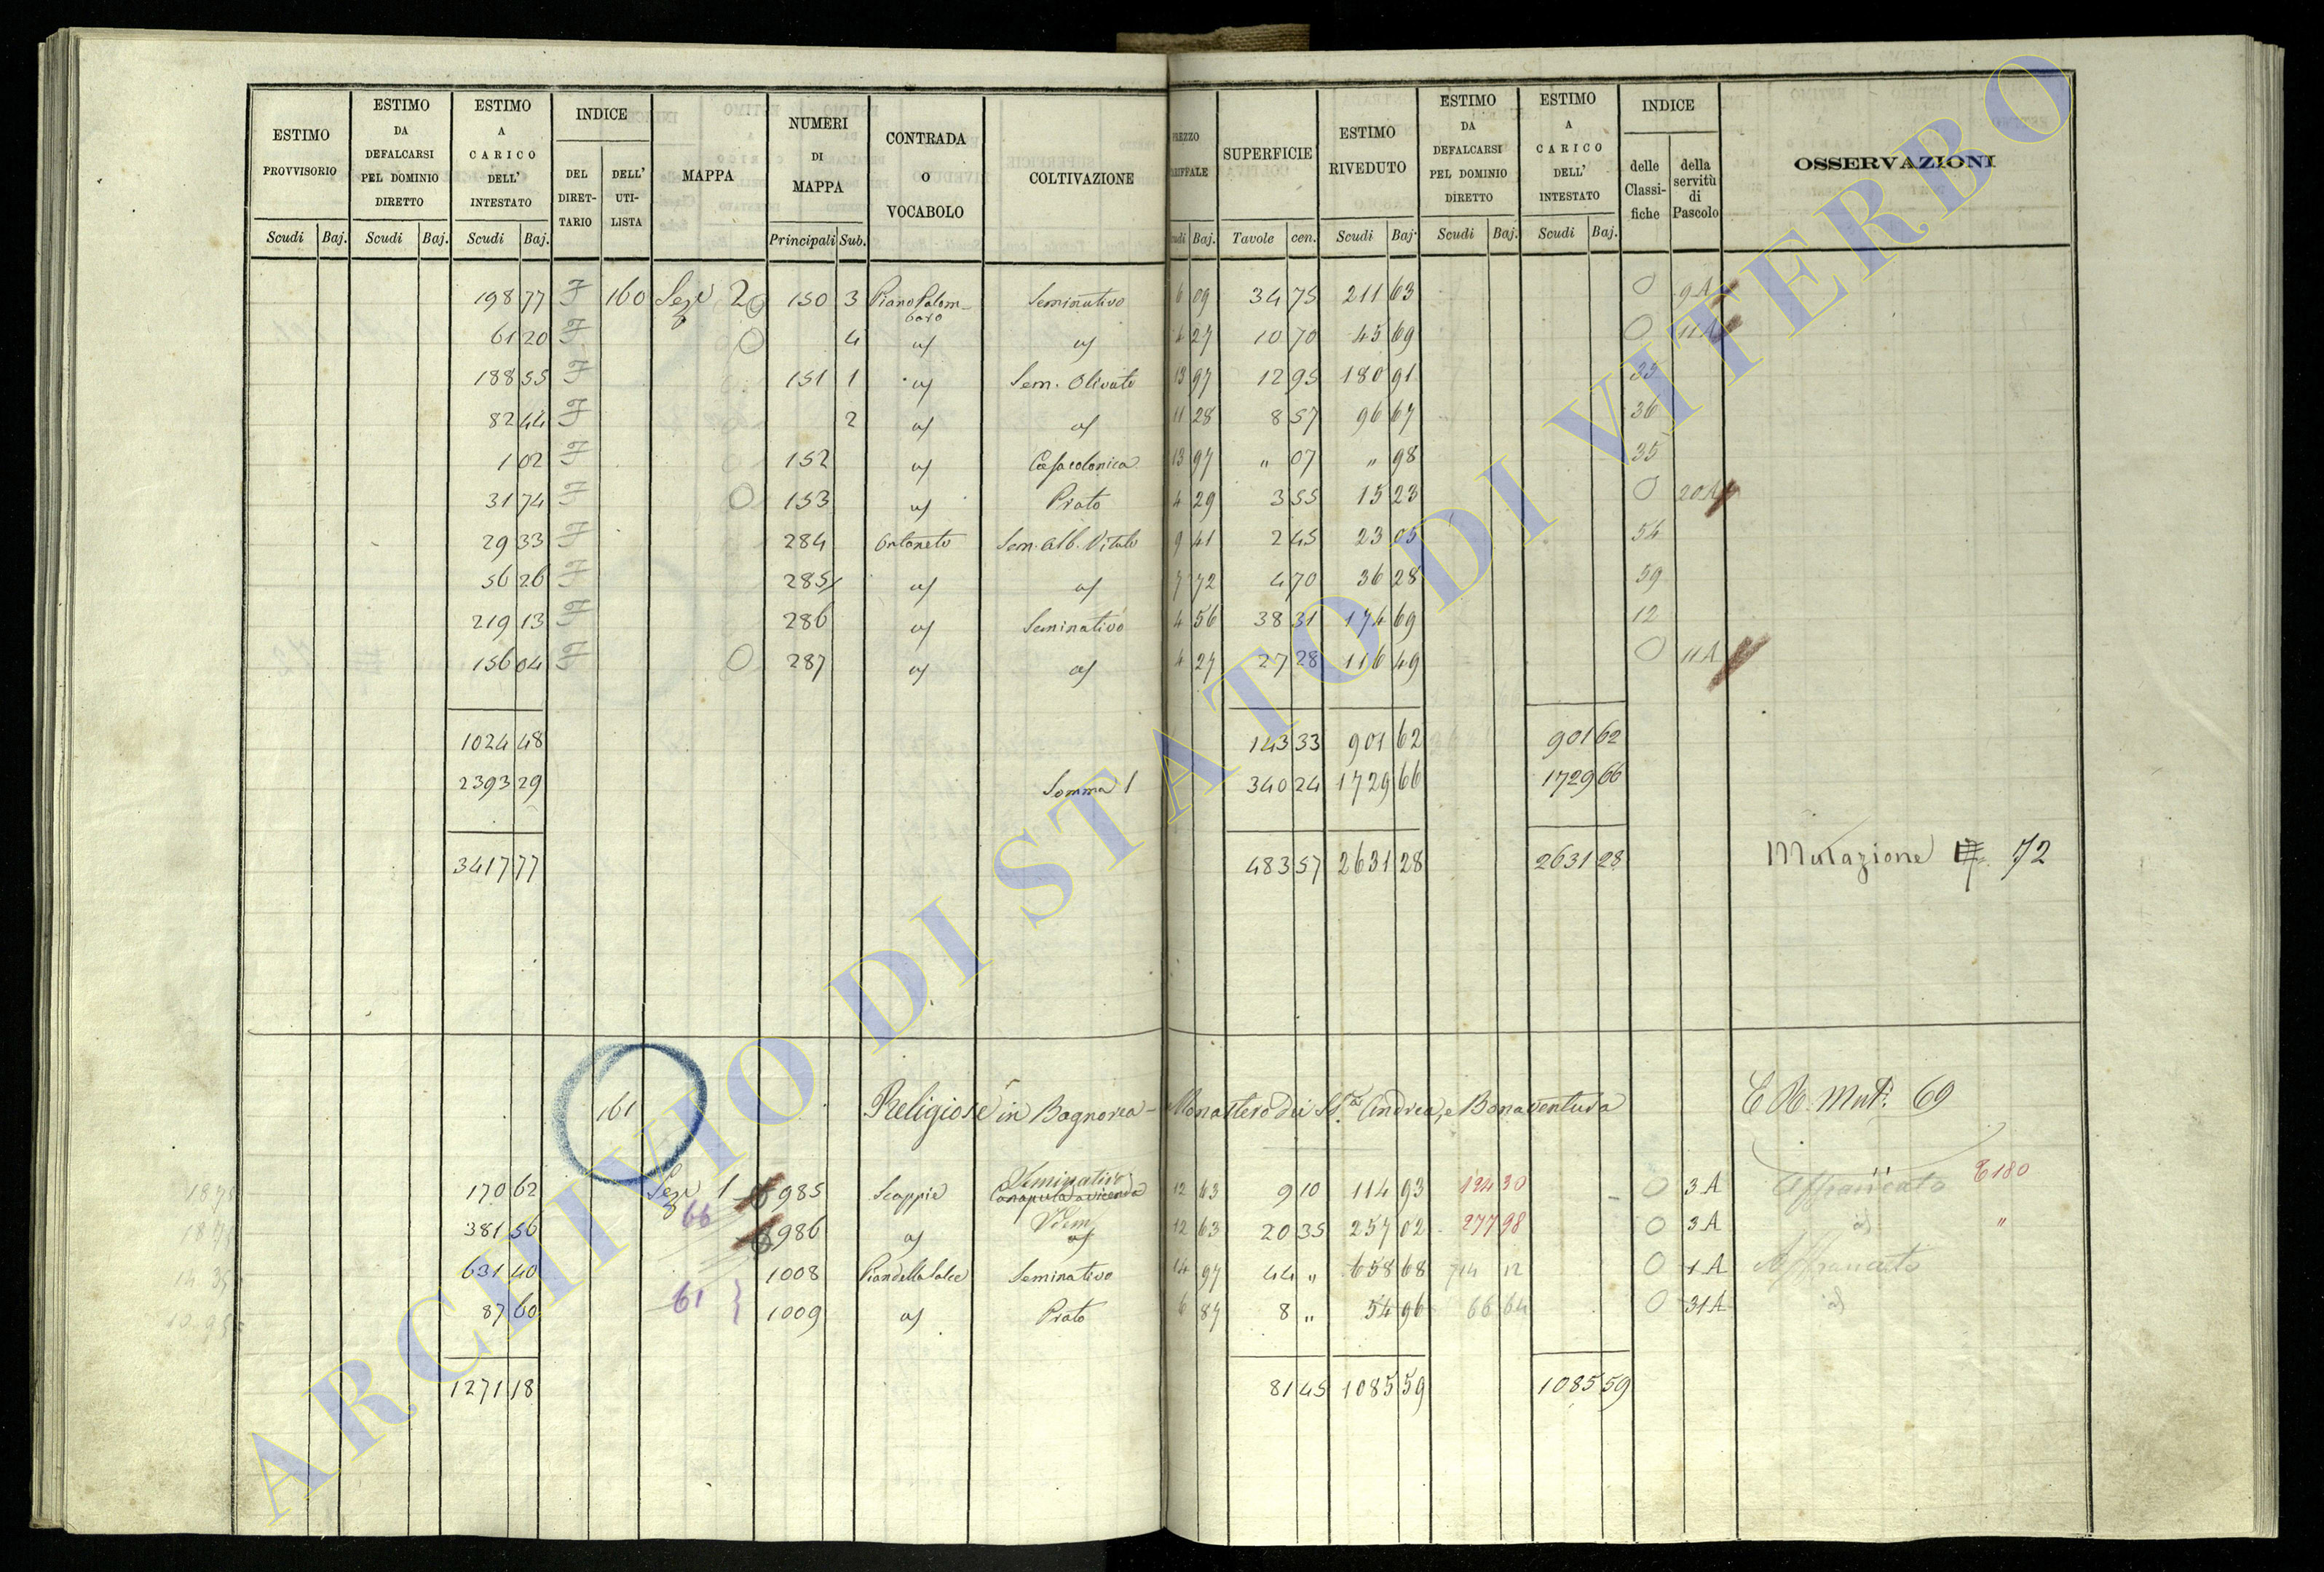 ESTIMO PROVVISORIO Scudi Baj. | ESTIMO DA DEFALCARSI PEL DOMINIO DIRETTO Scudi Baj. | ESTIMO A CARICO DELL' INTESTATO Scudi Baj. | INDICE DEL DIRET-TARIO | DELL' UTI-LISTA | MAPPA | NUMERI DI MAPPA Principali Sub. | CONTRADA O VOCABOLO | COLTIVAZIONE | PREZZO TARIFFALE Scudi Baj. | SUPERFICIE Tavole cen. | ESTIMO RIVEDUTO Scudi Baj. | ESTIMO DA DEFALCARSI PEL DOMINIO DIRETTO Scudi Baj. | ESTIMO A CARICO DELL' INTESTATO Scudi Baj. | INDICE delle Classi-fiche | della servitù di Pascolo | OSSERVAZIONI
198 77 F 160 Seze 2 O 150 3 Piano Palom-baro Seminativo 6 09 34 75 211 63 O 9A
61 20 F O 4 id id 4 27 10 70 45 69 O 11A
188 55 F 151 1 id Sem. Olivato 13 97 12 95 180 91 35
82 44 F 2 id id 11 28 8 57 96 67 36
1 02 F 152 id Casa colonica 13 97 " 07 " 98 35
31 74 F O 153 id Prato 4 29 3 55 15 23 O 20A
29 33 F 284 Ontaneto Sem. Alb. Vitato 9 41 2 45 23 05 54
36 26 F 285 id id 7 72 4 70 36 28 59
219 13 F 286 id Seminativo 4 56 38 31 174 69 12
156 04 F O 287 id id 4 27 27 28 116 49 O 11A
1024 48 143 33 901 62 901 62
2393 29 Somma 1 340 24 1729 66 1729 66
3417 77 483 57 2631 28 2631 28 Mutazione 72
161 Religiose in Bagnorea - Monastero dei SS. Andrea, e Bonaventura Mut. 69
170 62 Seze 1 985 Scappie Seminativo Canapula a vicenda 12 63 9 10 114 93 124 30 O 3A Affrancato 180
66
381 56 986 id Idem id 12 63 20 35 257 02 277 98 O 3A id "
631 40 1008 Pian della Salce Seminativo 14 97 44 " 658 68 714 12 O 1A Affrancato
61 }
87 60 1009 id Prato 6 87 8 " 54 96 66 64 O 31A id
1271 18 81 45 1085 59 1085 59
ARCHIVIO DI STATO DI VITERBO